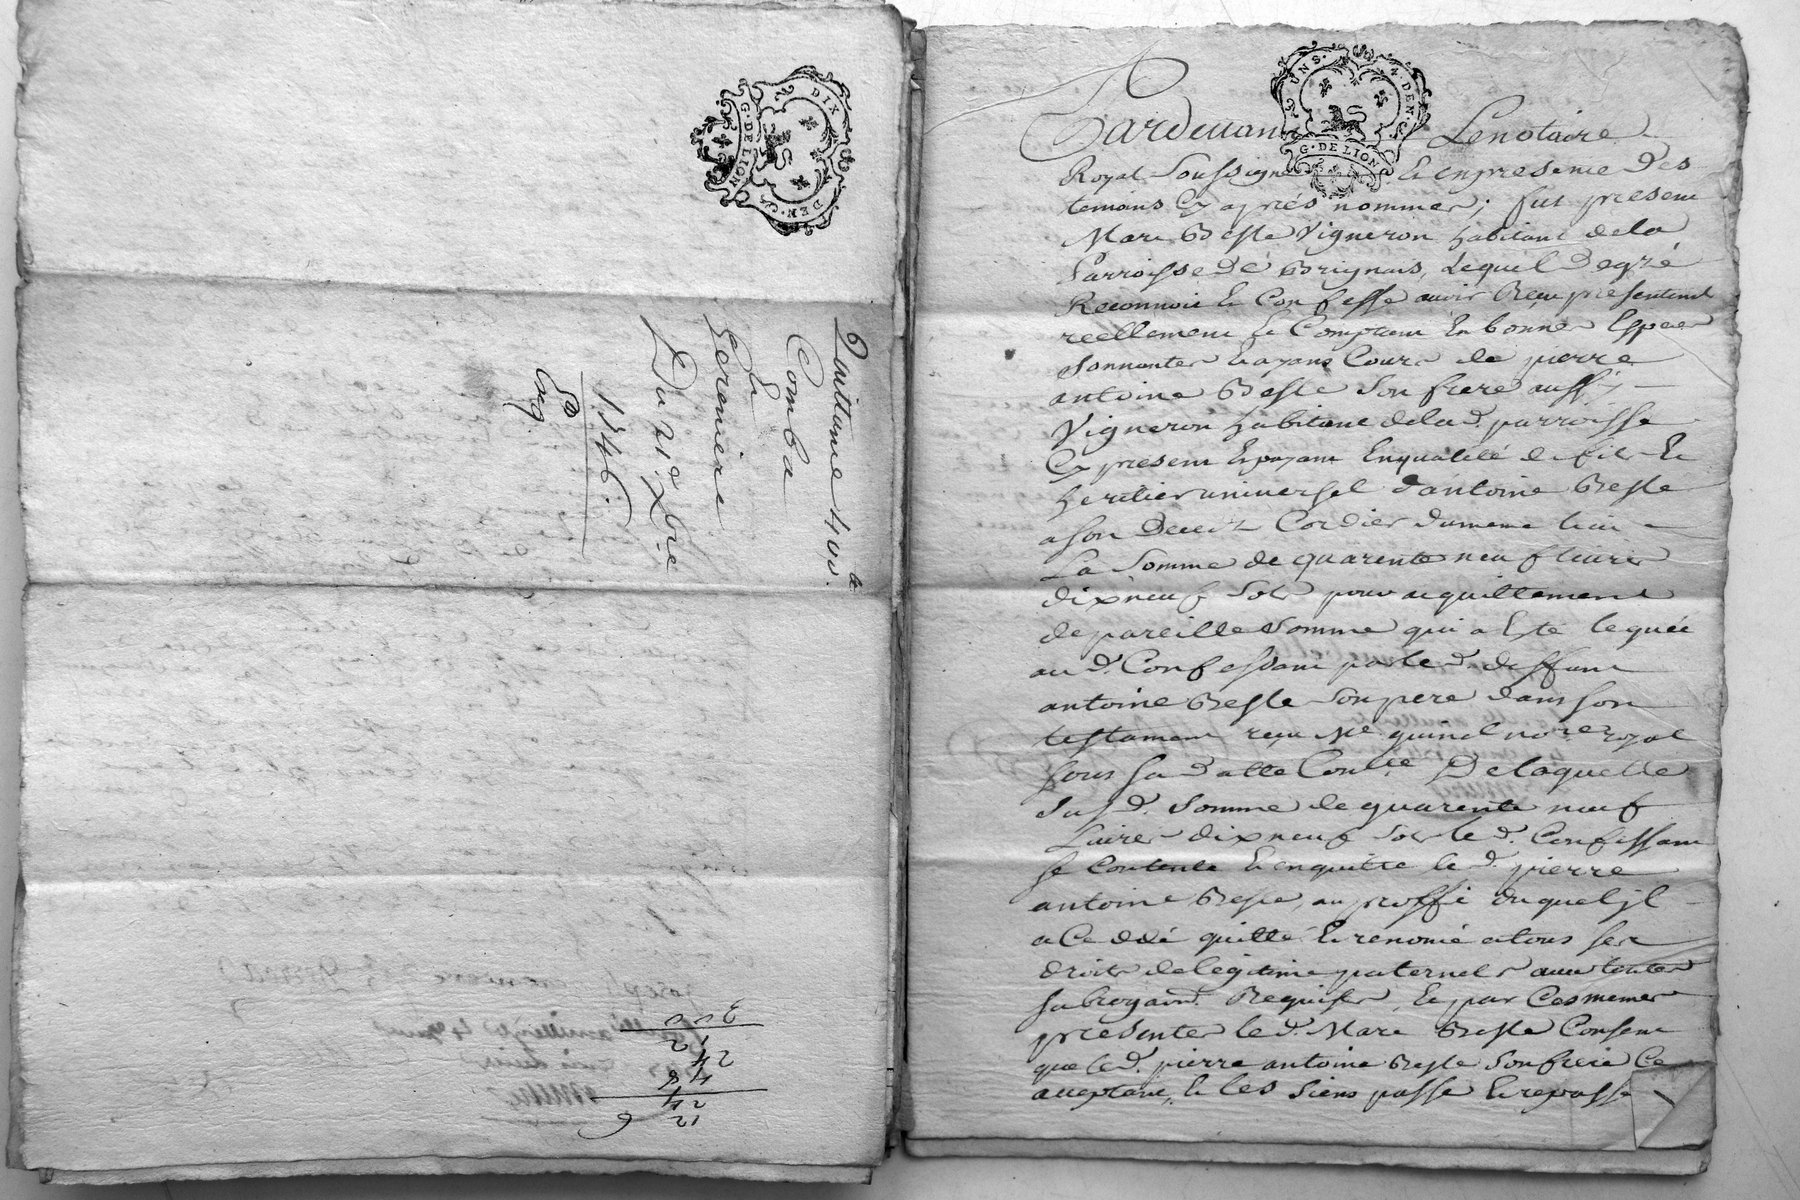 DIX DEN.
G. DE LION
Quittance 400 tt
Comba
Et
Du 21e Xbre
1746.
Exp
UNS. 4. DEN.
G. DE LION
Pardevant Le notaire
Royal Soussigné Et en presence des
temoins Cy apres nommes; fut present
Marc Beste Vigneron habitant de la
Parroisse de Brignais, Lequel de gré
Reconnoit Et Confesse avoir Reçu presentemt
reellement Et Comptant En bonnes Especes
Sonnantes Et ayans Cours de pierre
antoine Beste Son frere aussy
Vigneron habitant de la d. parroisse
Cy present Et payant En qualité de fils Et
heritier universel d'antoine Beste
a son deced Cordier du meme lieu
La Somme de quarente neuf livres
dix neuf Sols pour acquittement
de pareille Somme qui a Eté leguée
au d. Confessant par le d. deffunt
antoine Beste Son pere dans son
testament reçu Me guinel nore royal
sous sa datte Conlée De laquelle
Susd. Somme de quarente neuf
Livres dix neuf Sols le d. Confessant
se Contente Et en quitte le d. pierre
antoine Beste, au proffit du quel jl
a Ceddé quitté Et renoncé a tous ses
droits de legitime paternels avec toutes
subrogaons Requises, Et par Ces memes
presentes le d. Marc Beste Consent
que le d. pierre antoine Beste Son frere Ce
acceptant, Et les Siens passe Et repasse